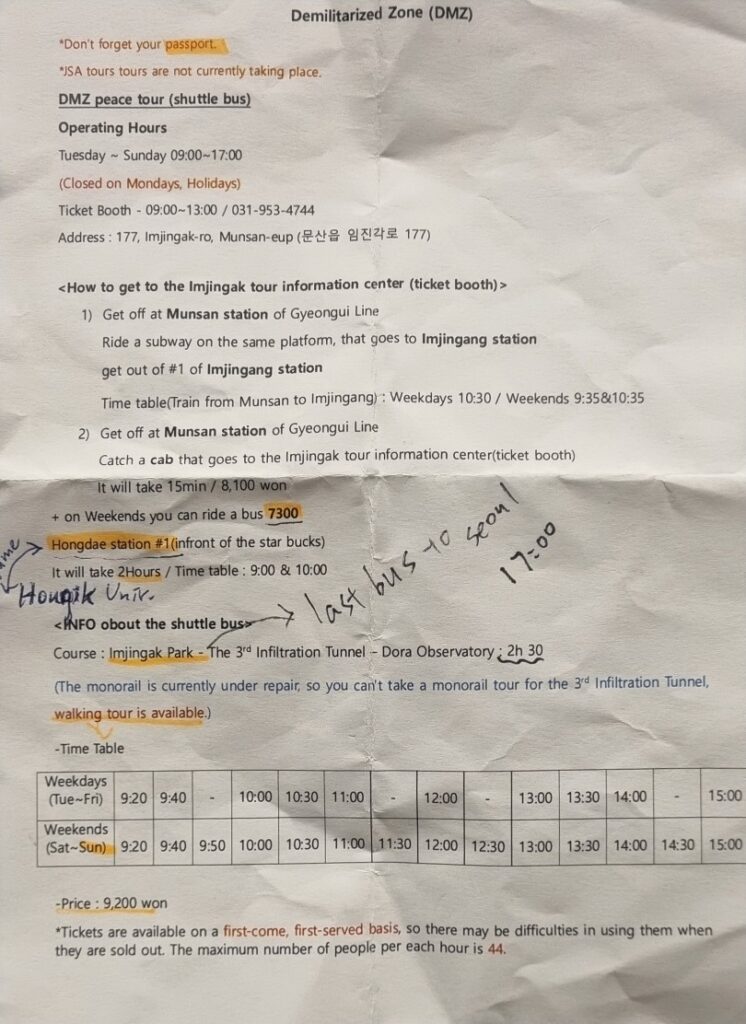 Demilitarized Zone (DMZ)
*Don't forget your passport.
*JSA tours tours are not currently taking place.
DMZ peace tour (shuttle bus)
Operating Hours
Tuesday ~ Sunday 09:00~17:00
(Closed on Mondays, Holidays)
Ticket Booth - 09:00~13:00 / 031-953-4744
Address : 177, Imjingak-ro, Munsan-eup (문산읍 임진각로 177)
<How to get to the Imjingak tour information center (ticket booth)>
1) Get off at Munsan station of Gyeongui Line
Ride a subway on the same platform, that goes to Imjingang station
get out of #1 of Imjingang station
Time table(Train from Munsan to Imjingang) : Weekdays 10:30 / Weekends 9:35&10:35
2) Get off at Munsan station of Gyeongui Line
Catch a cab that goes to the Imjingak tour information center(ticket booth)
It will take 15min / 8,100 won
+ on Weekends you can ride a bus 7300
Hongdae station #1(infront of the star bucks)
It will take 2Hours / Time table : 9:00 & 10:00
Hongik Univ.
last bus to seoul
17:00
<INFO obout the shuttle bus>
Course : Imjingak Park - The 3rd Infiltration Tunnel – Dora Observatory : 2h 30
(The monorail is currently under repair, so you can't take a monorail tour for the 3rd Infiltration Tunnel,
walking tour is available.)
-Time Table
Weekdays
(Tue~Fri) 9:20 9:40 - 10:00 10:30 11:00 - 12:00 - 13:00 13:30 14:00 - 15:00
Weekends
(Sat~Sun) 9:20 9:40 9:50 10:00 10:30 11:00 11:30 12:00 12:30 13:00 13:30 14:00 14:30 15:00
-Price : 9,200 won
*Tickets are available on a first-come, first-served basis, so there may be difficulties in using them when
they are sold out. The maximum number of people per each hour is 44.